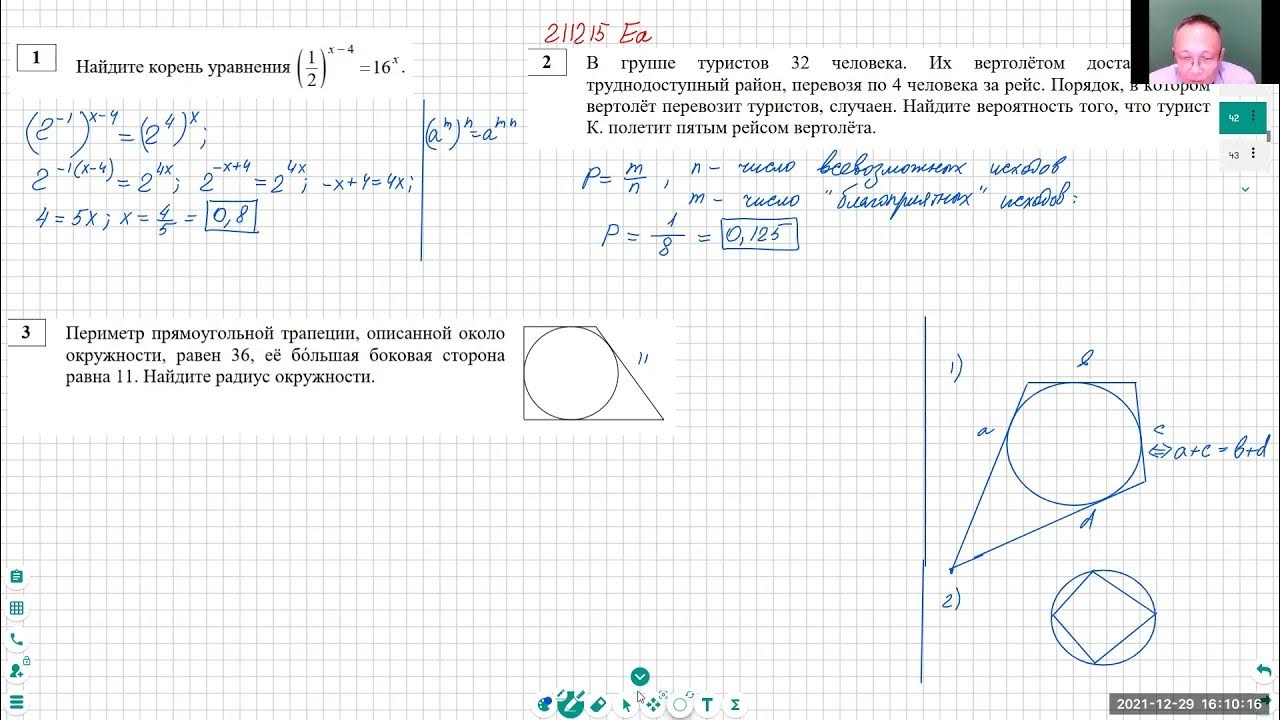 211215 Ea
1
Найдите корень уравнения (1/2)^(x−4) = 16^x.
(2^-1)^(x-4) = (2^4)^x;
(a^m)^n = a^mn
2^-1(x-4) = 2^4x; 2^-x+4 = 2^4x; -x+4=4x;
4=5x; x=4/5= 0,8
2
В группе туристов 32 человека. Их вертолётом доста
труднодоступный район, перевозя по 4 человека за рейс. Порядок, в котором
вертолёт перевозит туристов, случаен. Найдите вероятность того, что турист
К. полетит пятым рейсом вертолёта.
P= m/n, n - число всевозможных исходов
m - число "благоприятных" исходов:
P = 1/8 = 0,125
42
43
3
Периметр прямоугольной трапеции, описанной около
окружности, равен 36, её бо́льшая боковая сторона
равна 11. Найдите радиус окружности.
11
1)
b
a
c
⇔ a+c = b+d
d
2)
T Σ
2021-12-29 16:10:16